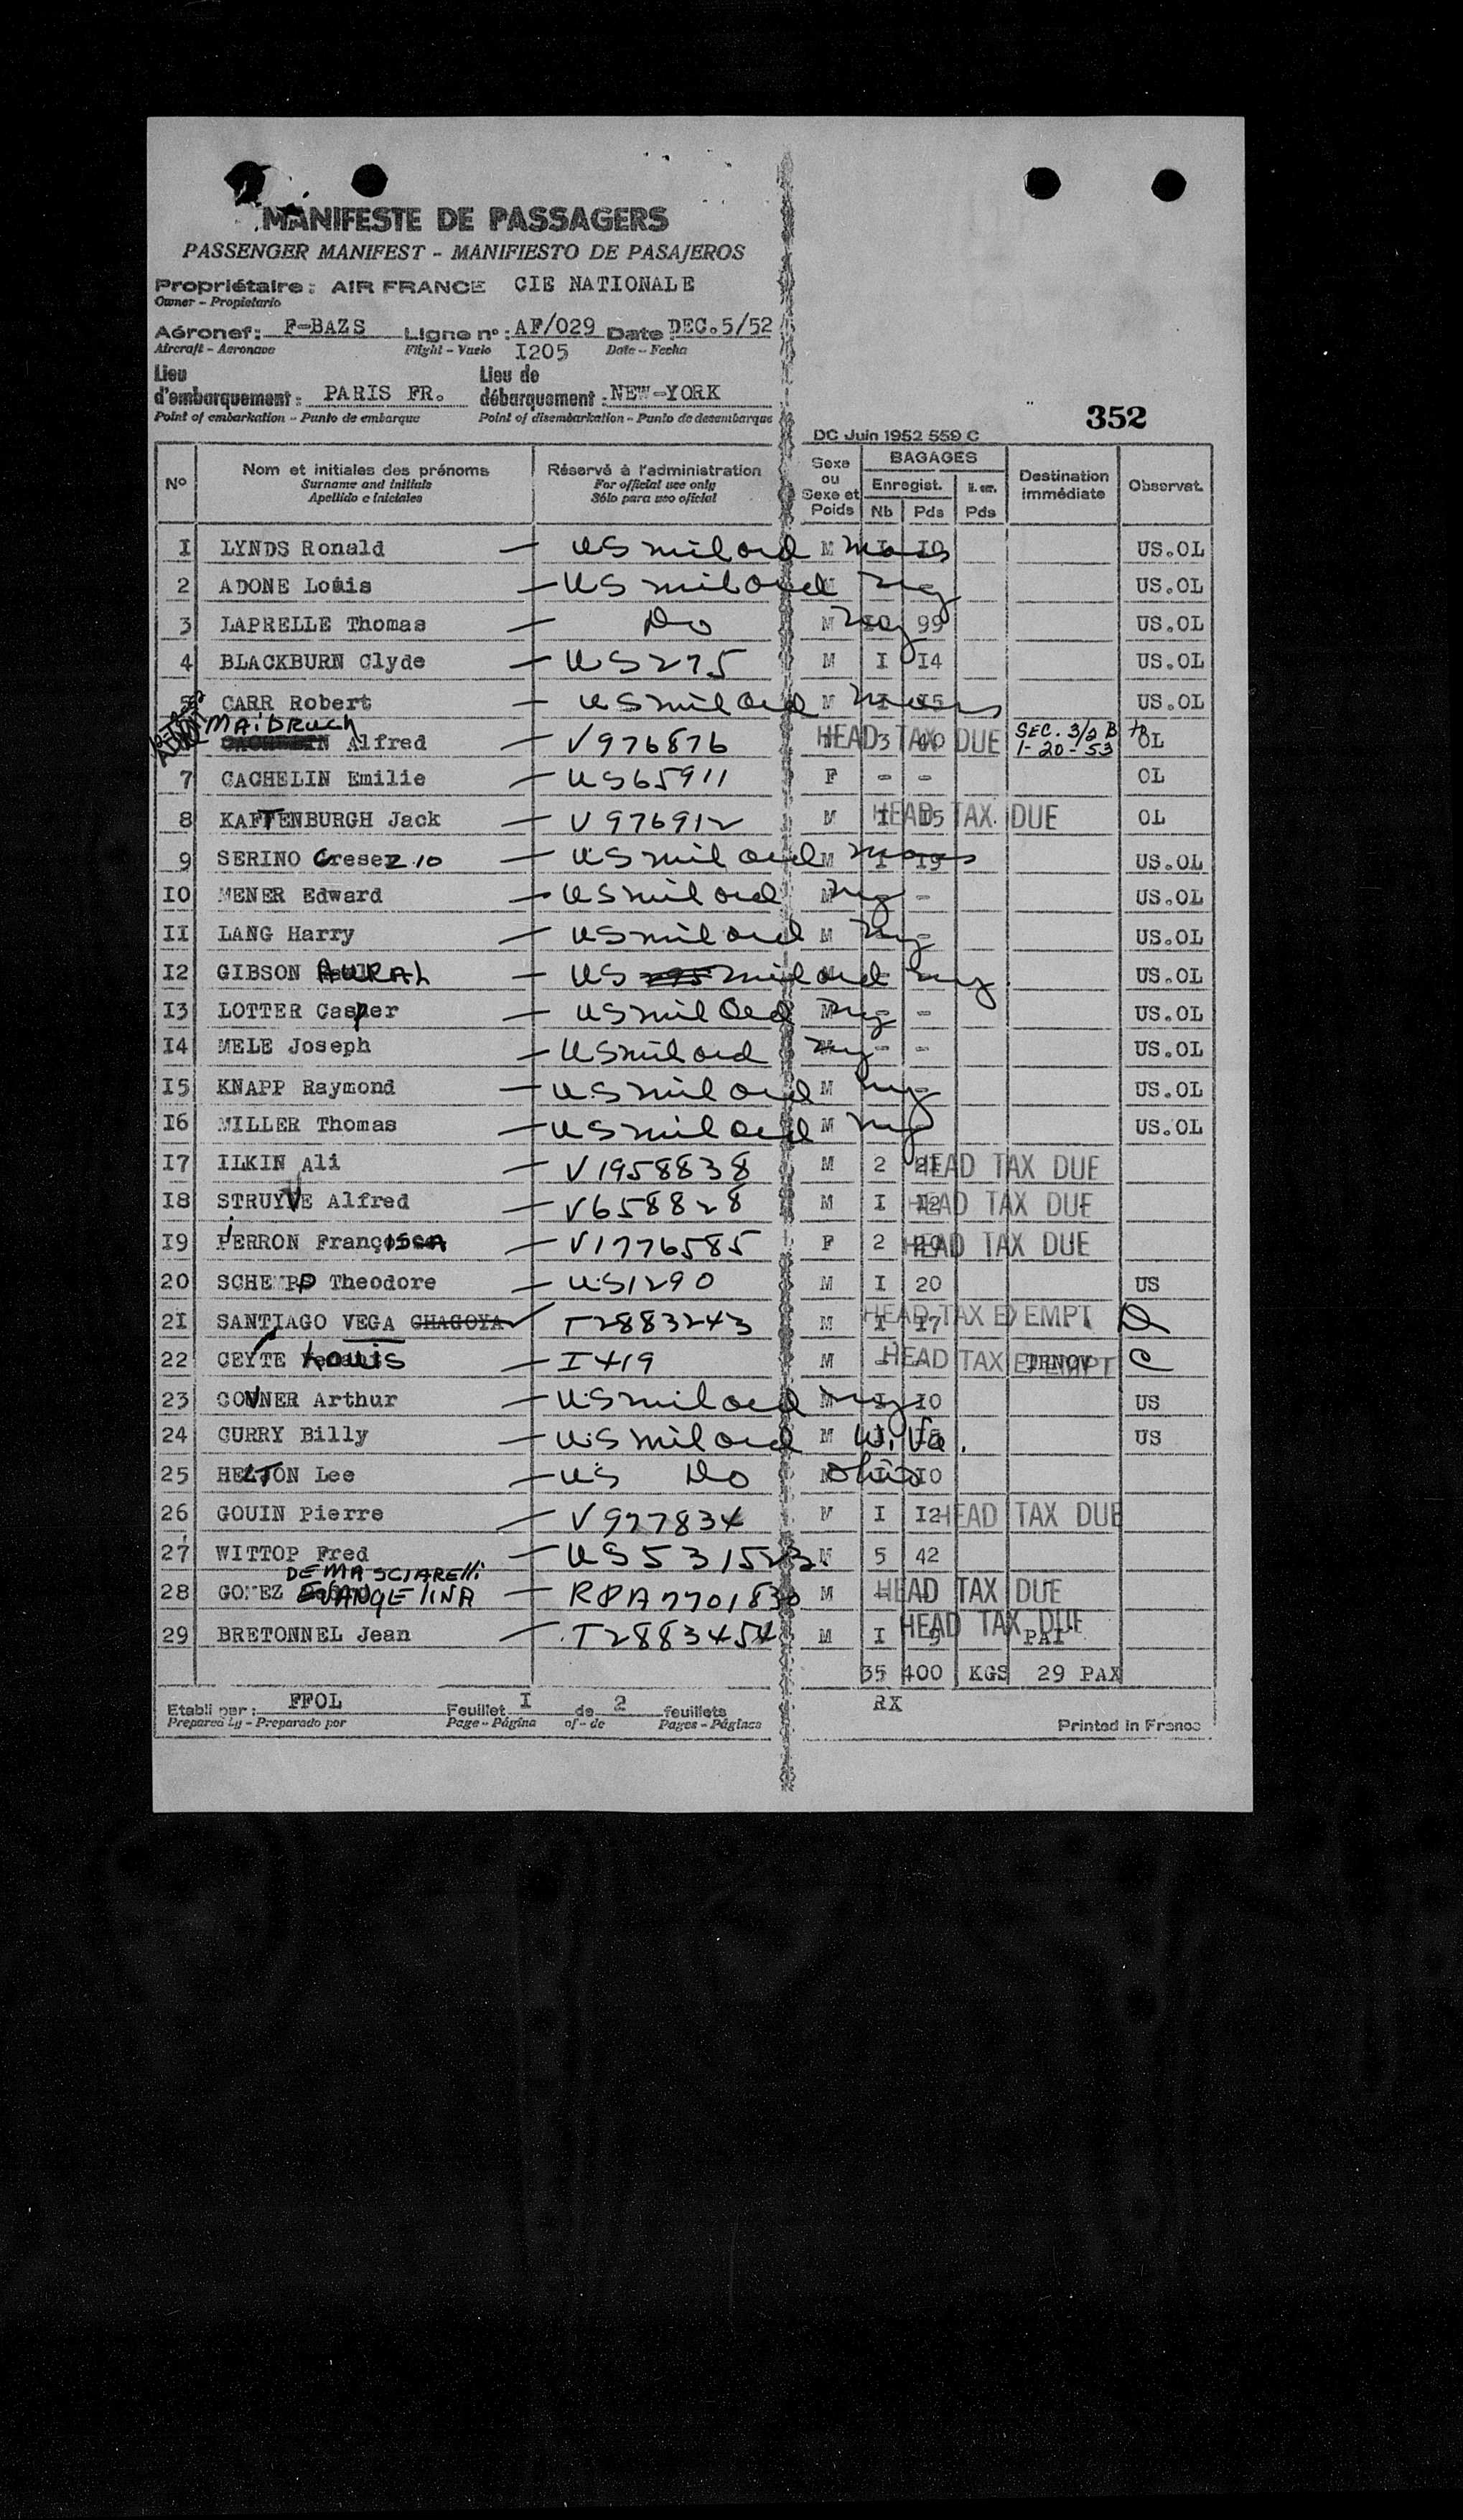 MANIFESTE DE PASSAGERS
PASSENGER MANIFEST - MANIFIESTO DE PASAJEROS
Propriétaire : AIR FRANCE CIE NATIONALE
Owner - Propietario
Aéronef : F-BAZS Ligne n° : AF/029 Date : DEC.5/52
Aircraft - Aeronave Flight - Vuelo I205 Date - Fecha
Lieu d'embarquement : PARIS FR. Lieu de débarquement : NEW-YORK
Point of embarkation - Punto de embarque Point of disembarkation - Punto de desembarque
352
DC Juin 1952 559 C
N° Nom et initiales des prénoms Réservé à l'administration Sexe ou Sexe et Poids BAGAGES Destination immédiate Observat.
Surname and initials For official use only Enregist.
Apellido e iniciales Sólo para uso oficial Nb Pds Pds
I LYNDS Ronald — US mil ord M mass I I0 US.OL
2 ADONE Louis — US mil ord ny US.OL
3 LAPRELLE Thomas — Do M ny 99 US.OL
4 BLACKBURN Clyde — US275 M I I4 US.OL
5 CARR Robert — US mil ord M I I5 US.OL
MAIBRUCH
Alfred — V976876 3 40 HEAD TAX DUE SEC. 3/2 B 1-20-53 OL
7 CACHELIN Emilie — US65911 F - - OL
8 KATTENBURGH Jack — V976912 M I I5 HEAD TAX DUE OL
9 SERINO — US mil ord M mass I I9 US.OL
I0 MENER Edward — US mil ord M ny - US.OL
II LANG Harry — US mil ord M ny - US.OL
I2 GIBSON AURAL — US mil ord ny US.OL
I3 LOTTER Casper — US mil ord M ny - - US.OL
I4 MELE Joseph — US mil ord ny - - US.OL
I5 KNAPP Raymond — US mil ord M ny - US.OL
I6 MILLER Thomas — US mil ord M ny US.OL
I7 ILKIN Ali — V1958838 M 2 21 HEAD TAX DUE
I8 STRUYVE Alfred — V658828 M I I2 HEAD TAX DUE
I9 PERRON — V1776585 F 2 HEAD TAX DUE
20 SCHEMPP Theodore — US1290 M I 20 US
2I SANTIAGO VEGA CHAGOYA T2883243 M I I7 HEAD TAX EXEMPT D
22 CEYTE LOUIS — I419 M HEAD TAX EXEMPT C
23 Arthur — US mil ord M ny I I0 US
24 CURRY Billy — US mil ord M W. Va. US
25 HELTON Lee — US Do Ohio I0
26 GOUIN Pierre — V977834 M I I2 HEAD TAX DUE
27 WITTOP Fred — US531523 M 5 42
DE MASCIARELLI
28 GOMEZ EVANGELINA — RPA7701830 M HEAD TAX DUE
29 BRETONNEL Jean — T2883454 M I 9 HEAD TAX DUE PAI
35 400 KGS 29 PAX
Etabli par : FFOL Feuillet I de 2 feuillets RX
Prepared by - Preparado por Page - Página of - de Pages - Páginas Printed in France